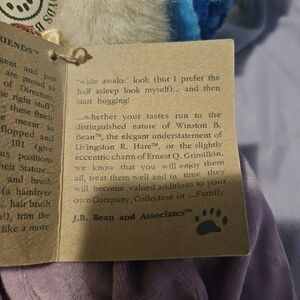 RIENDS™
gent and just
are proud to
of Director
he right stuff
these finely
n made to
flopped and
101 (give
us positions
heir Stature..
and brush
(a hairdryer
.. hair brush
s!), trim the
like a more
"wide awake" look (but I prefer the
half asleep look myself)... and then
start hugging!
...whether your tastes run to the
distinguished nature of Winston B.
Bean™, the elegant understatement of
Livingston R. Hare™, or the slightly
eccentric charm of Ernest Q. Grimilkin.
we know that you will enjoy them
all, treat them well and in time they
will become valued additions to your
own Company, Collection or ...Family.
J.B. Bean and Associates℠